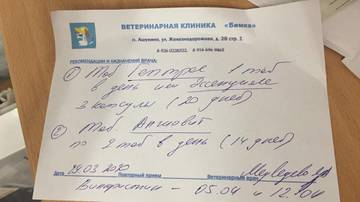 ВЕТЕРИНАРНАЯ КЛИНИКА «Бимка»
п. Ашукино, ул. Железнодорожная, д. 28 стр. 1
РЕКОМЕНДАЦИИ И НАЗНАЧЕНИЯ ВРАЧА:
① Таб Гептрос 1 таб
в день или Эссенциале
3 капсулы (20 дней)
② Таб
по 2 таб в день (14 дней)
Дата 29.03.2020 Повторно Ветеринарный врач Медведева
Винкристин - 05.04 и 12.04